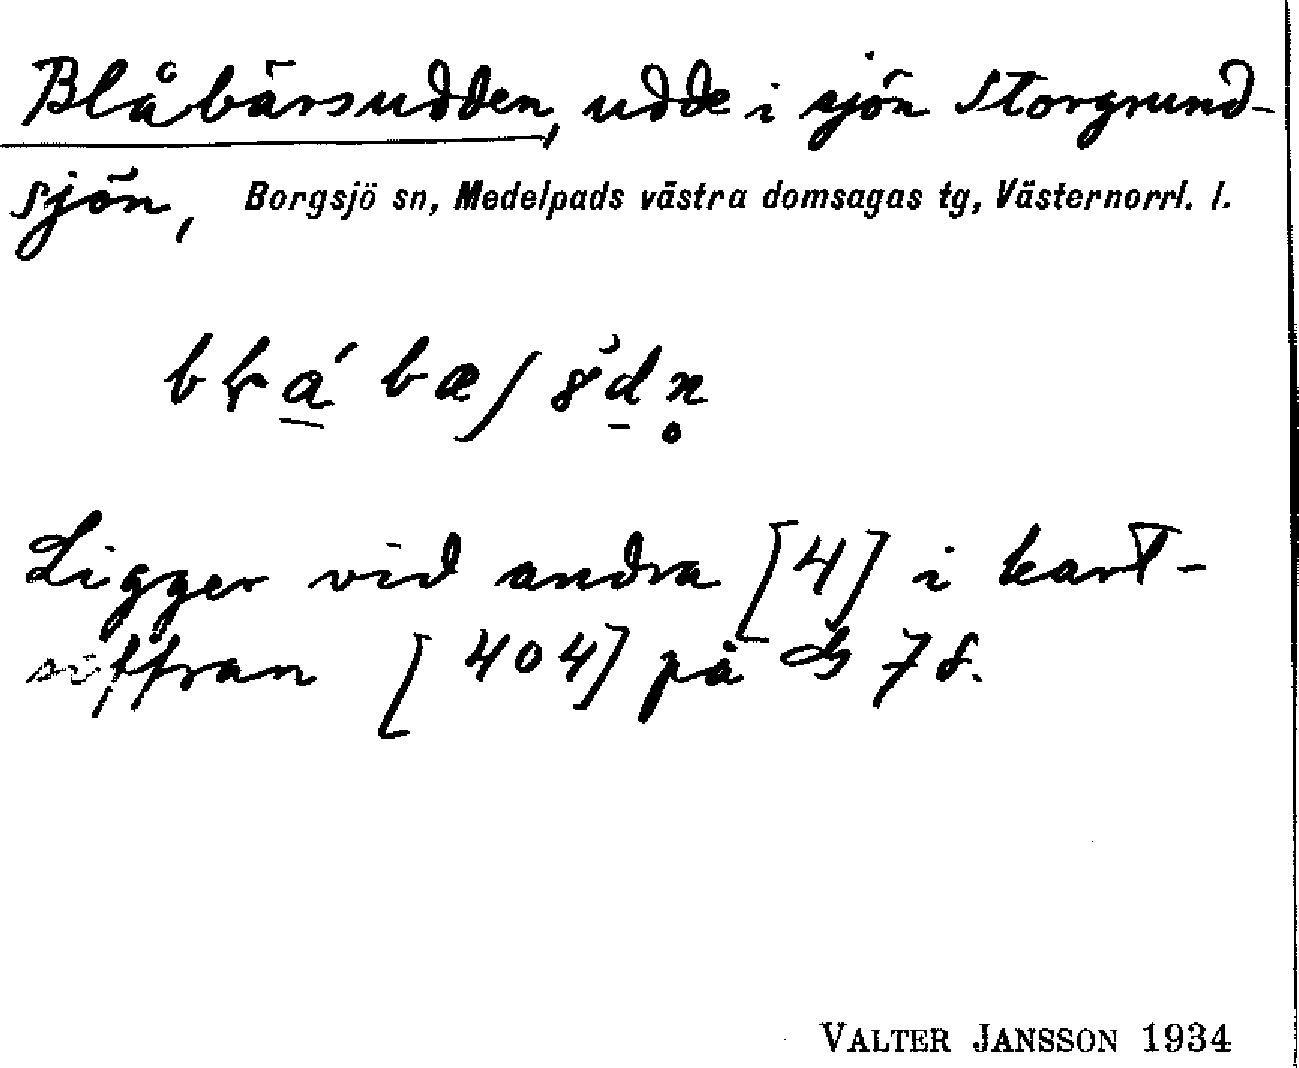 Blåbärsudden, udde i sjön Storgrund-
sjön, Borgsjö sn, Medelpads västra domsagas tg, Västernorrl. l.
Ligger vid andra [4] i kart-
siffran [404] på
VALTER JANSSON 1934